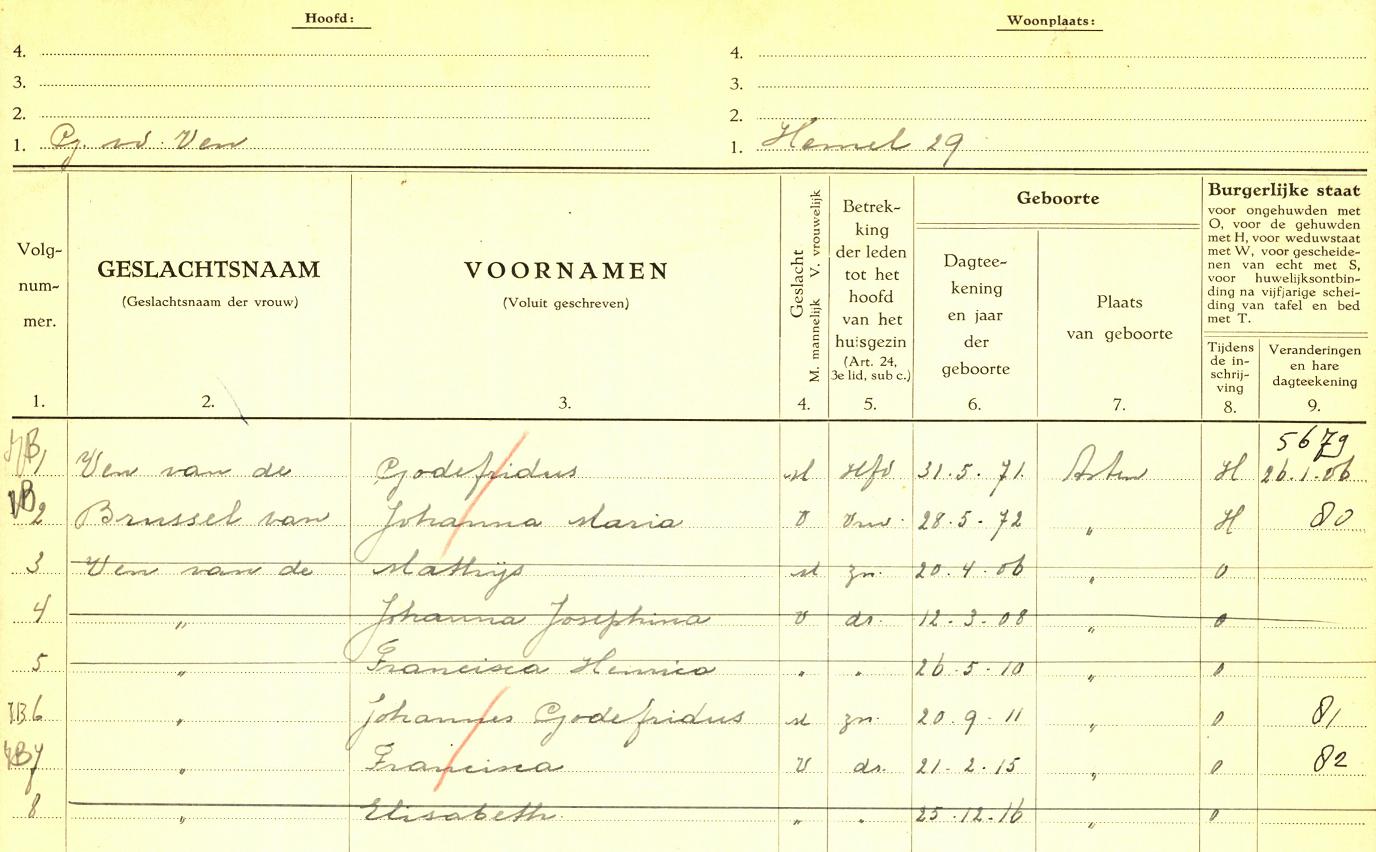 Hoofd: Woonplaats:
4. 4.
3. 3.
2. 2.
1. G. vd. Ven 1. Hemel 29
Volg-
num-
mer.
1.
GESLACHTSNAAM
(Geslachtsnaam der vrouw)
2.
VOORNAMEN
(Voluit geschreven)
3.
Geslacht
M. mannelijk V. vrouwelijk
4.
Betrek-
king
der leden
tot het
hoofd
van het
huisgezin
(Art. 24,
3e lid, sub c.)
5.
Geboorte
Dagtee-
kening
en jaar
der
geboorte
6.
Plaats
van geboorte
7.
Burgerlijke staat
voor ongehuwden met
O, voor de gehuwden
met H, voor weduwstaat
met W, voor gescheide-
nen van echt met S,
voor huwelijksontbin-
ding na vijfjarige schei-
ding van tafel en bed
met T.
Tijdens
de in-
schrij-
ving
8.
Veranderingen
en hare
dagteekening
9.
5679
VB 1 Ven van de Godefridus M Hfd 31.5.71. Asten H 26.1.06
VB 2 Brussel van Johanna Maria V vrw. 28.5.72 „ H 80
3 Ven van de Mathijs M zn. 20.4.06 „ O
4 „ Johanna Josephina V dr. 12.3.08 „ O
5 „ Francisca Henrica „ „ 26.5.10 „ O
VB 6 „ Johannes Godefridus M zn. 20.9.11 „ O 81
VB 7 „ Francisca V dr. 21.2.15 „ O 82
8 „ Elisabeth. „ „ 25.12.16 „ O